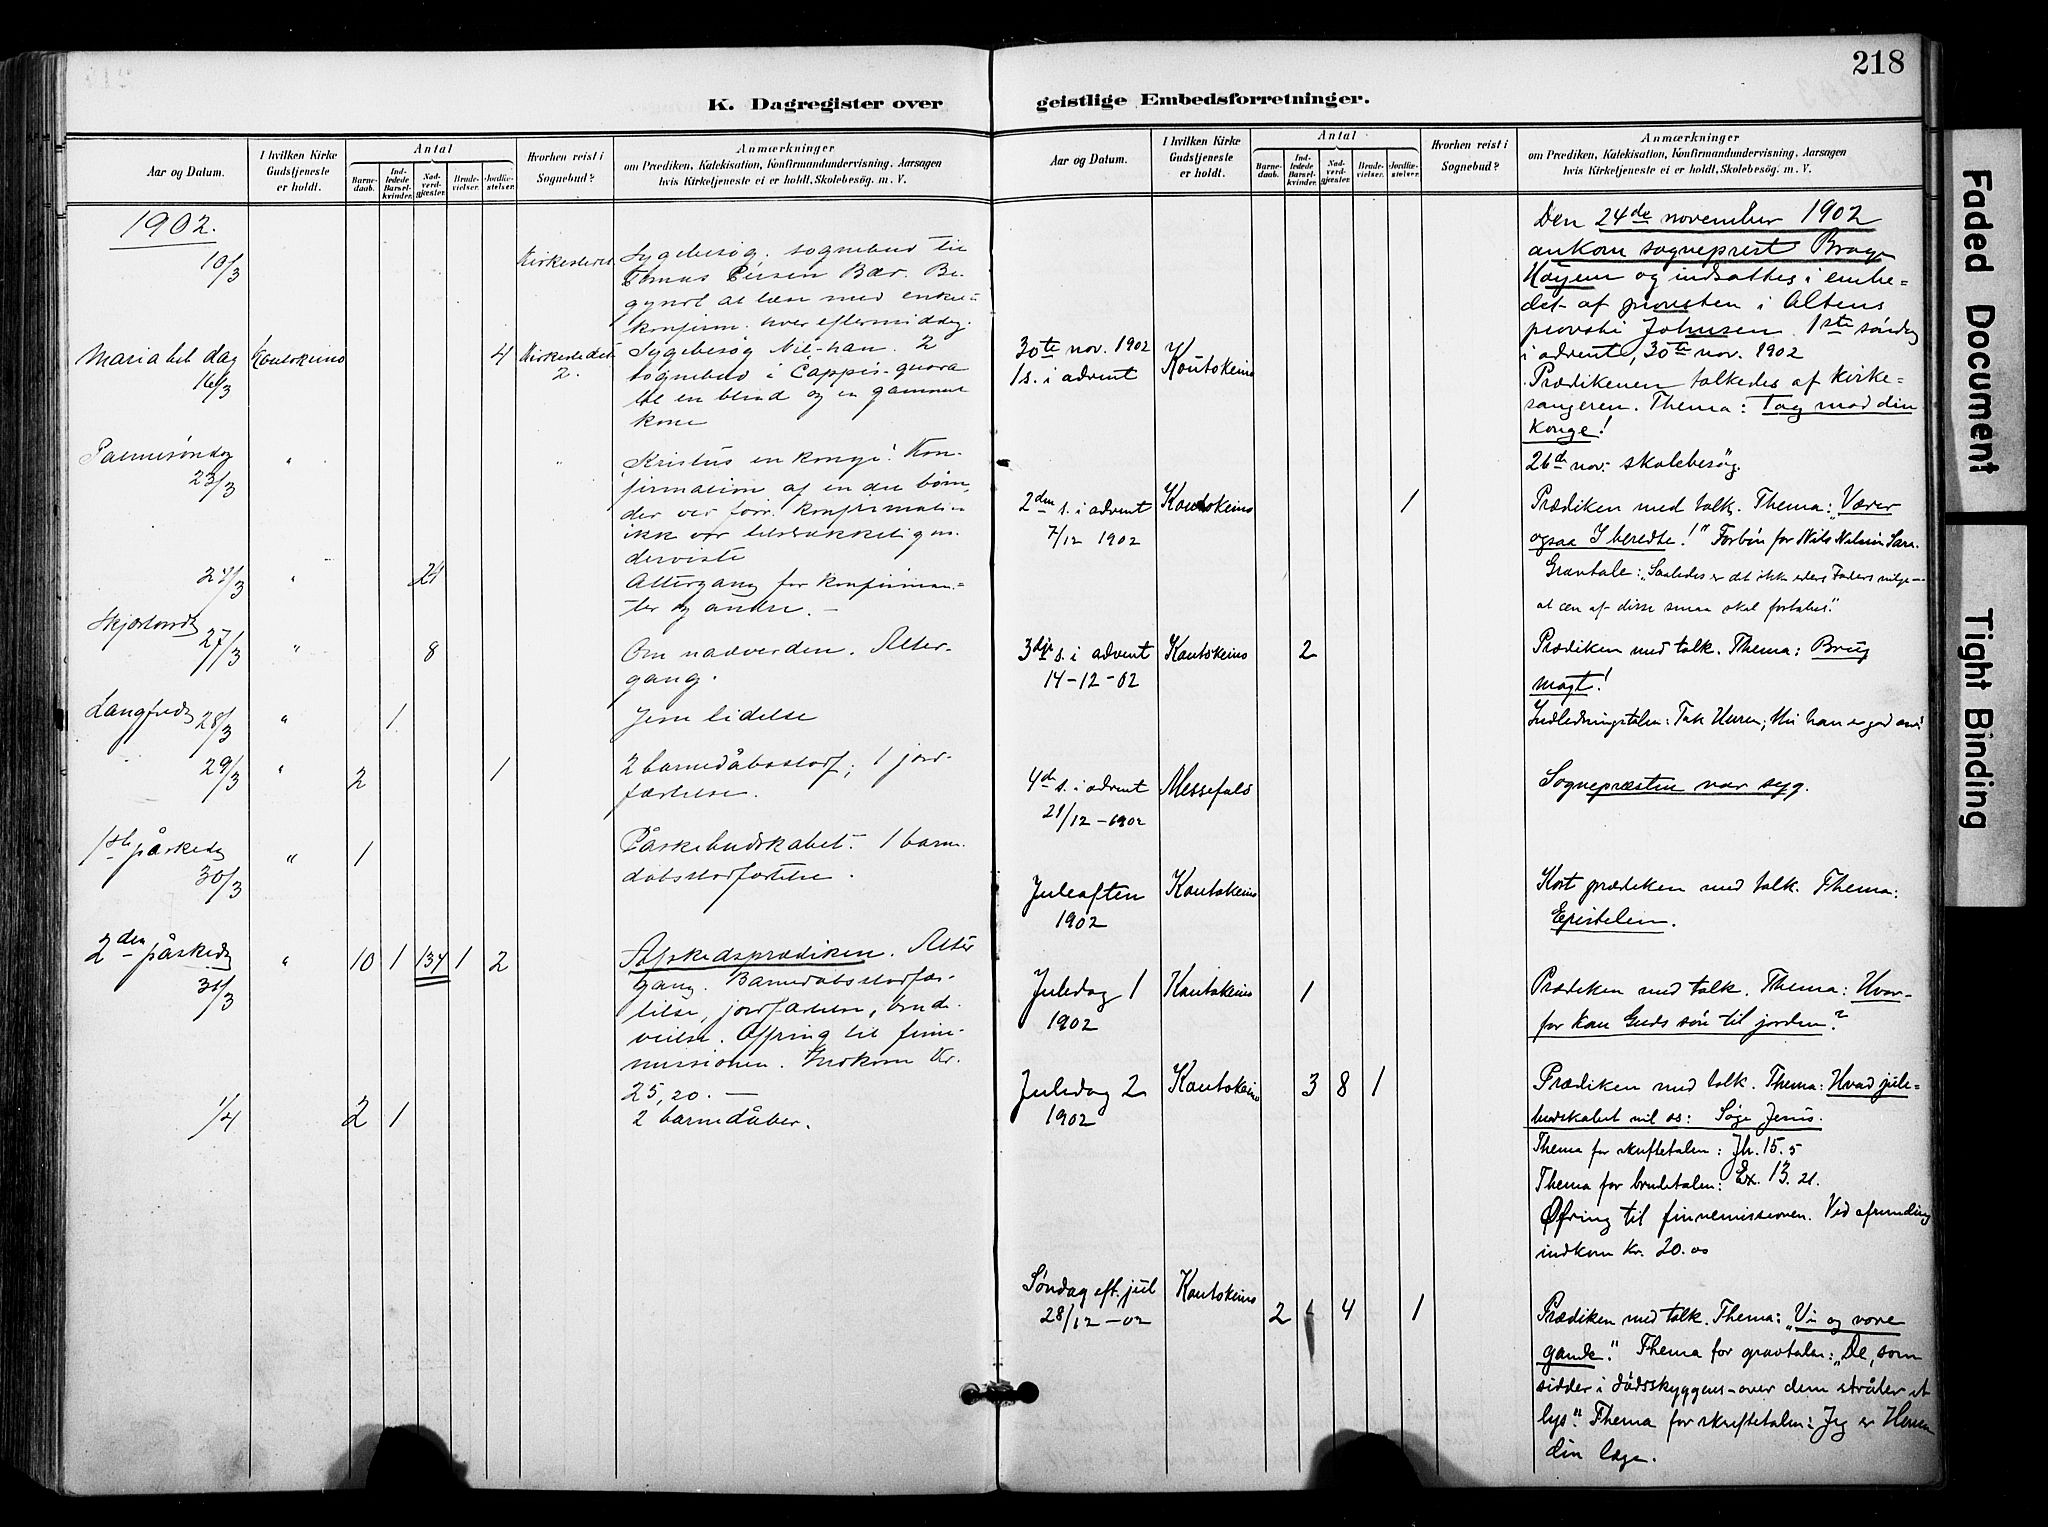 218
K. Dagregister over
geistlige Embedsforretninger.
Aar og Datum.
I hvilken Kirke
Gudstjeneste
er holdt.
Antal
Barne-
daab.
Ind-
ledede
Barsel-
kvinder.
Nad-
verd-
gjæster.
Brude-
vielser.
Jordfæ-
stelser.
Hvorhen reist i
Sognebud?
Anmærkninger
om Prædiken, Katekisation, Konfirmandundervisning, Aarsagen
hvis Kirketjeneste ei er holdt, Skolebesøg. m. V.
1902.
10/3
Kirkestedet
Sygebesøg, sognebud til
Tomas Persen Bær. Be-
gyndt at læse med enkelte
konfirm. hver eftermiddag.
Maria beb. dag Koutokeino 4 Kirkestedet
16/3 2.
Sygebesøg Nil-han. 2
sognebud i Cappis-guora
til en blind og en gammel
kone
Palmesøndag "
23/3
Kristus en konge! Kon-
firmation af en del børn,
der ved forr. konfirmation
ikke var tilstrækkelig un-
derviste
24/3 " 24
Altergang for konfirman-
ter og andre. —
Skjærtorsd
27/3 " 8
Om nadverden. Alter-
gang.
Langfredg
28/3 " 1
Jesu lidelse
29/3 " 2 1
2 barnedåbsstadf.; 1 jord-
fæstelse.
1ste påskedg
30/3 " 1
Påskebudskabet. 1 barne-
dåbsstadfæstelse.
2den påskedg
31/3 " 10 1 134 1 2
Afskedsprædiken. Alter
gang. Barnedåbsstadfæs-
telse, jordfæstelse, brud-
vielse. Offring til finne-
missionen. Indkom kr.
25,20. —
1/4 2 1
2 barnedåber.
Aar og Datum.
I hvilken Kirke
Gudstjeneste
er holdt.
Antal
Barne-
daab.
Ind-
ledede
Barsel-
kvinder.
Nad-
verd-
gjæster.
Brude-
vielser.
Jordfæ-
stelser.
Hvorhen reist i
Sognebud?
Anmærkninger
om Prædiken, Katekisation, Konfirmandundervisning, Aarsagen
hvis Kirketjeneste ei er holdt, Skolebesøg. m. V.
Den 24de november 1902
ankom sogneprest Brage
Høyem og indsattes i embe-
det af provsten i Altens
provsti Johnsen. 1ste søndag
i advent, 30te nov. 1902
30te nov. 1902
1 s. i advent Koutokeino
Prædikenen tolkedes af kirke-
sangeren. Thema: Tag mod din
Konge!
26de nov. skolebesøg.
2den s. i advent
7/12 1902 Koutokeino 1
Prædiken med tolk. Thema: "Værer
ogsaa I beredte!" Forbøn for Nils Nilsen Sara.
Gravtale: "Saaledes er det ikke eders Faders vilje—
at een af disse smaa skal fortabes."
3dje s. i advent
14-12-02 Kautokeino 2
Prædiken med tolk. Thema: Brug
magt!
Indledningstalen: Tak Herren, thi han er god osv.
4de s. i advent
21/12-1902 Messefald
Sognepræsten var syg.
Juleaften
1902 Kautokeino
Kort prædiken med tolk. Thema:
Epistelen.
Juledag 1
1902 Kautokeino 1
Prædiken med tolk. Thema: Hvor-
for kom Guds søn til jorden?
Juledag 2
1902 Kautokeino 3 8 1
Prædiken med tolk. Thema: Hvad jule-
budskabet vil os: Søge Jesus.
Thema for skriftetalen: Jh. 15. 5
Thema for brudetalen: Ex. 13. 21.
Øfring til finnemissionen. Ved afrunding
indkom kr. 20.00
Søndag eft. jul
28/12-02 Kautokeino 2 4 1
Prædiken med tolk. Thema: "Vi og vore
gamle." Thema for gravtalen: "De, som
sidder i dødsskyggens-over dem stråler et
lys." Thema for skriftetalen: Jeg er Herren
din læge.
Faded Document
Tight Binding